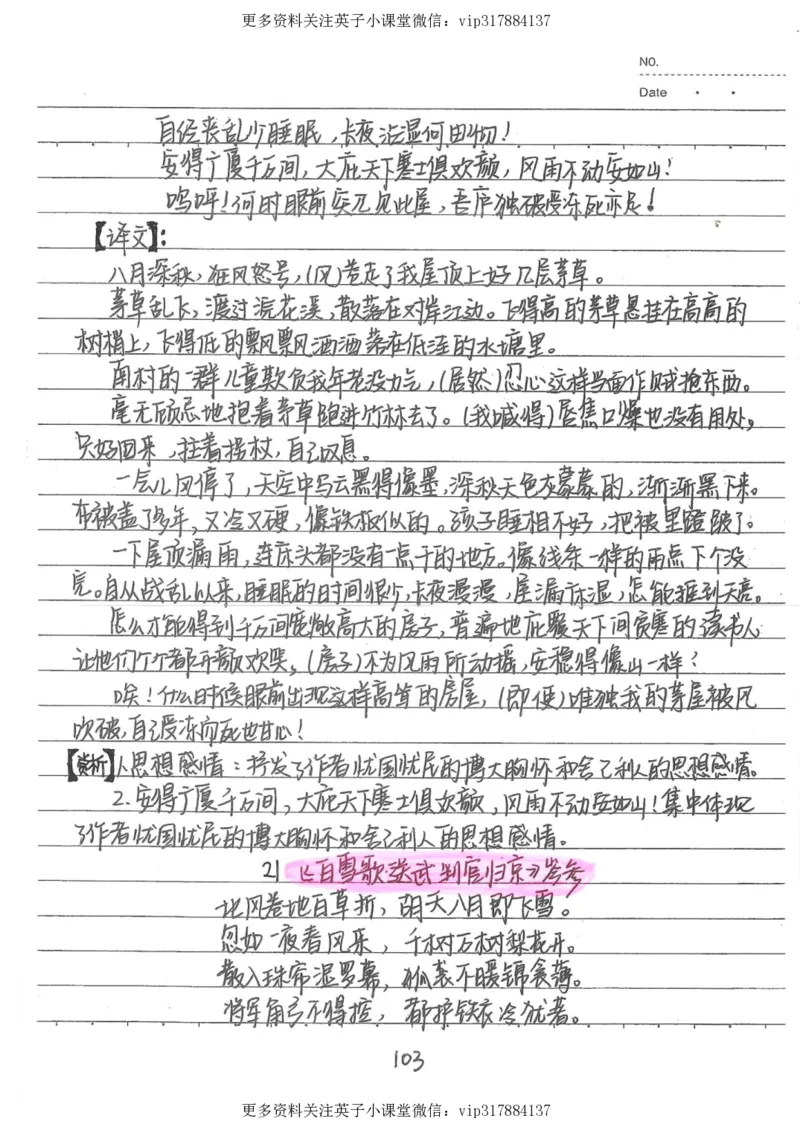 更多资料关注英子小课堂微信：vip317884137
NO.
Date
自经丧乱少睡眠，长夜沾湿何由彻！
安得广厦千万间，大庇天下寒士俱欢颜，风雨不动安如山！
呜呼！何时眼前突兀见此屋，吾庐独破受冻死亦足！
【译文】：
八月深秋，狂风怒号，(风)卷走了我屋顶上好几层茅草。
茅草乱飞，渡过浣花溪，散落在对岸江边。飞得高的茅草悬挂在高高的
树梢上，飞得低的飘飘洒洒落在低洼的水塘里。
南村的一群儿童欺负我年老没力气，(居然)忍心这样当面作贼抢东西。
毫无顾忌地抱着茅草跑进竹林去了。(我喊得)唇焦口燥也没有用处，
只好回来，拄着拐杖，自己叹息。
一会儿风停了，天空中乌云黑得像墨，深秋天色灰蒙蒙的，渐渐黑下来。
布被盖了多年，又冷又硬，像铁板似的。孩子睡相不好，把被里蹬破了。
一下屋顶漏雨，连床头都没有一点干的地方。像线条一样的雨点下个没
完。自从战乱以来，睡眠的时间很少，长夜漫漫，屋漏床湿，怎能捱到天亮。
怎么才能得到千万间宽敞高大的房子，普遍地庇覆天下间贫寒的读书人
让他们个个都开颜欢笑，(房子)不为风雨所动摇，安稳得像山一样？
唉！什么时候眼前出现这样高耸的房屋，(即便)唯独我的茅屋被风
吹破，自己受冻而死也甘心！
【赏析】1.思想感情：抒发了作者忧国忧民的博大胸怀和舍己利人的思想感情。
2.安得广厦千万间，大庇天下寒士俱欢颜，风雨不动安如山！集中体现
了作者忧国忧民的博大胸怀和舍己利人的思想感情。
21《白雪歌送武判官归京》岑参
北风卷地百草折，胡天八月即飞雪。
忽如一夜春风来，千树万树梨花开。
散入珠帘湿罗幕，狐裘不暖锦衾薄。
将军角弓不得控，都护铁衣冷犹著。
103
更多资料关注英子小课堂微信：vip317884137